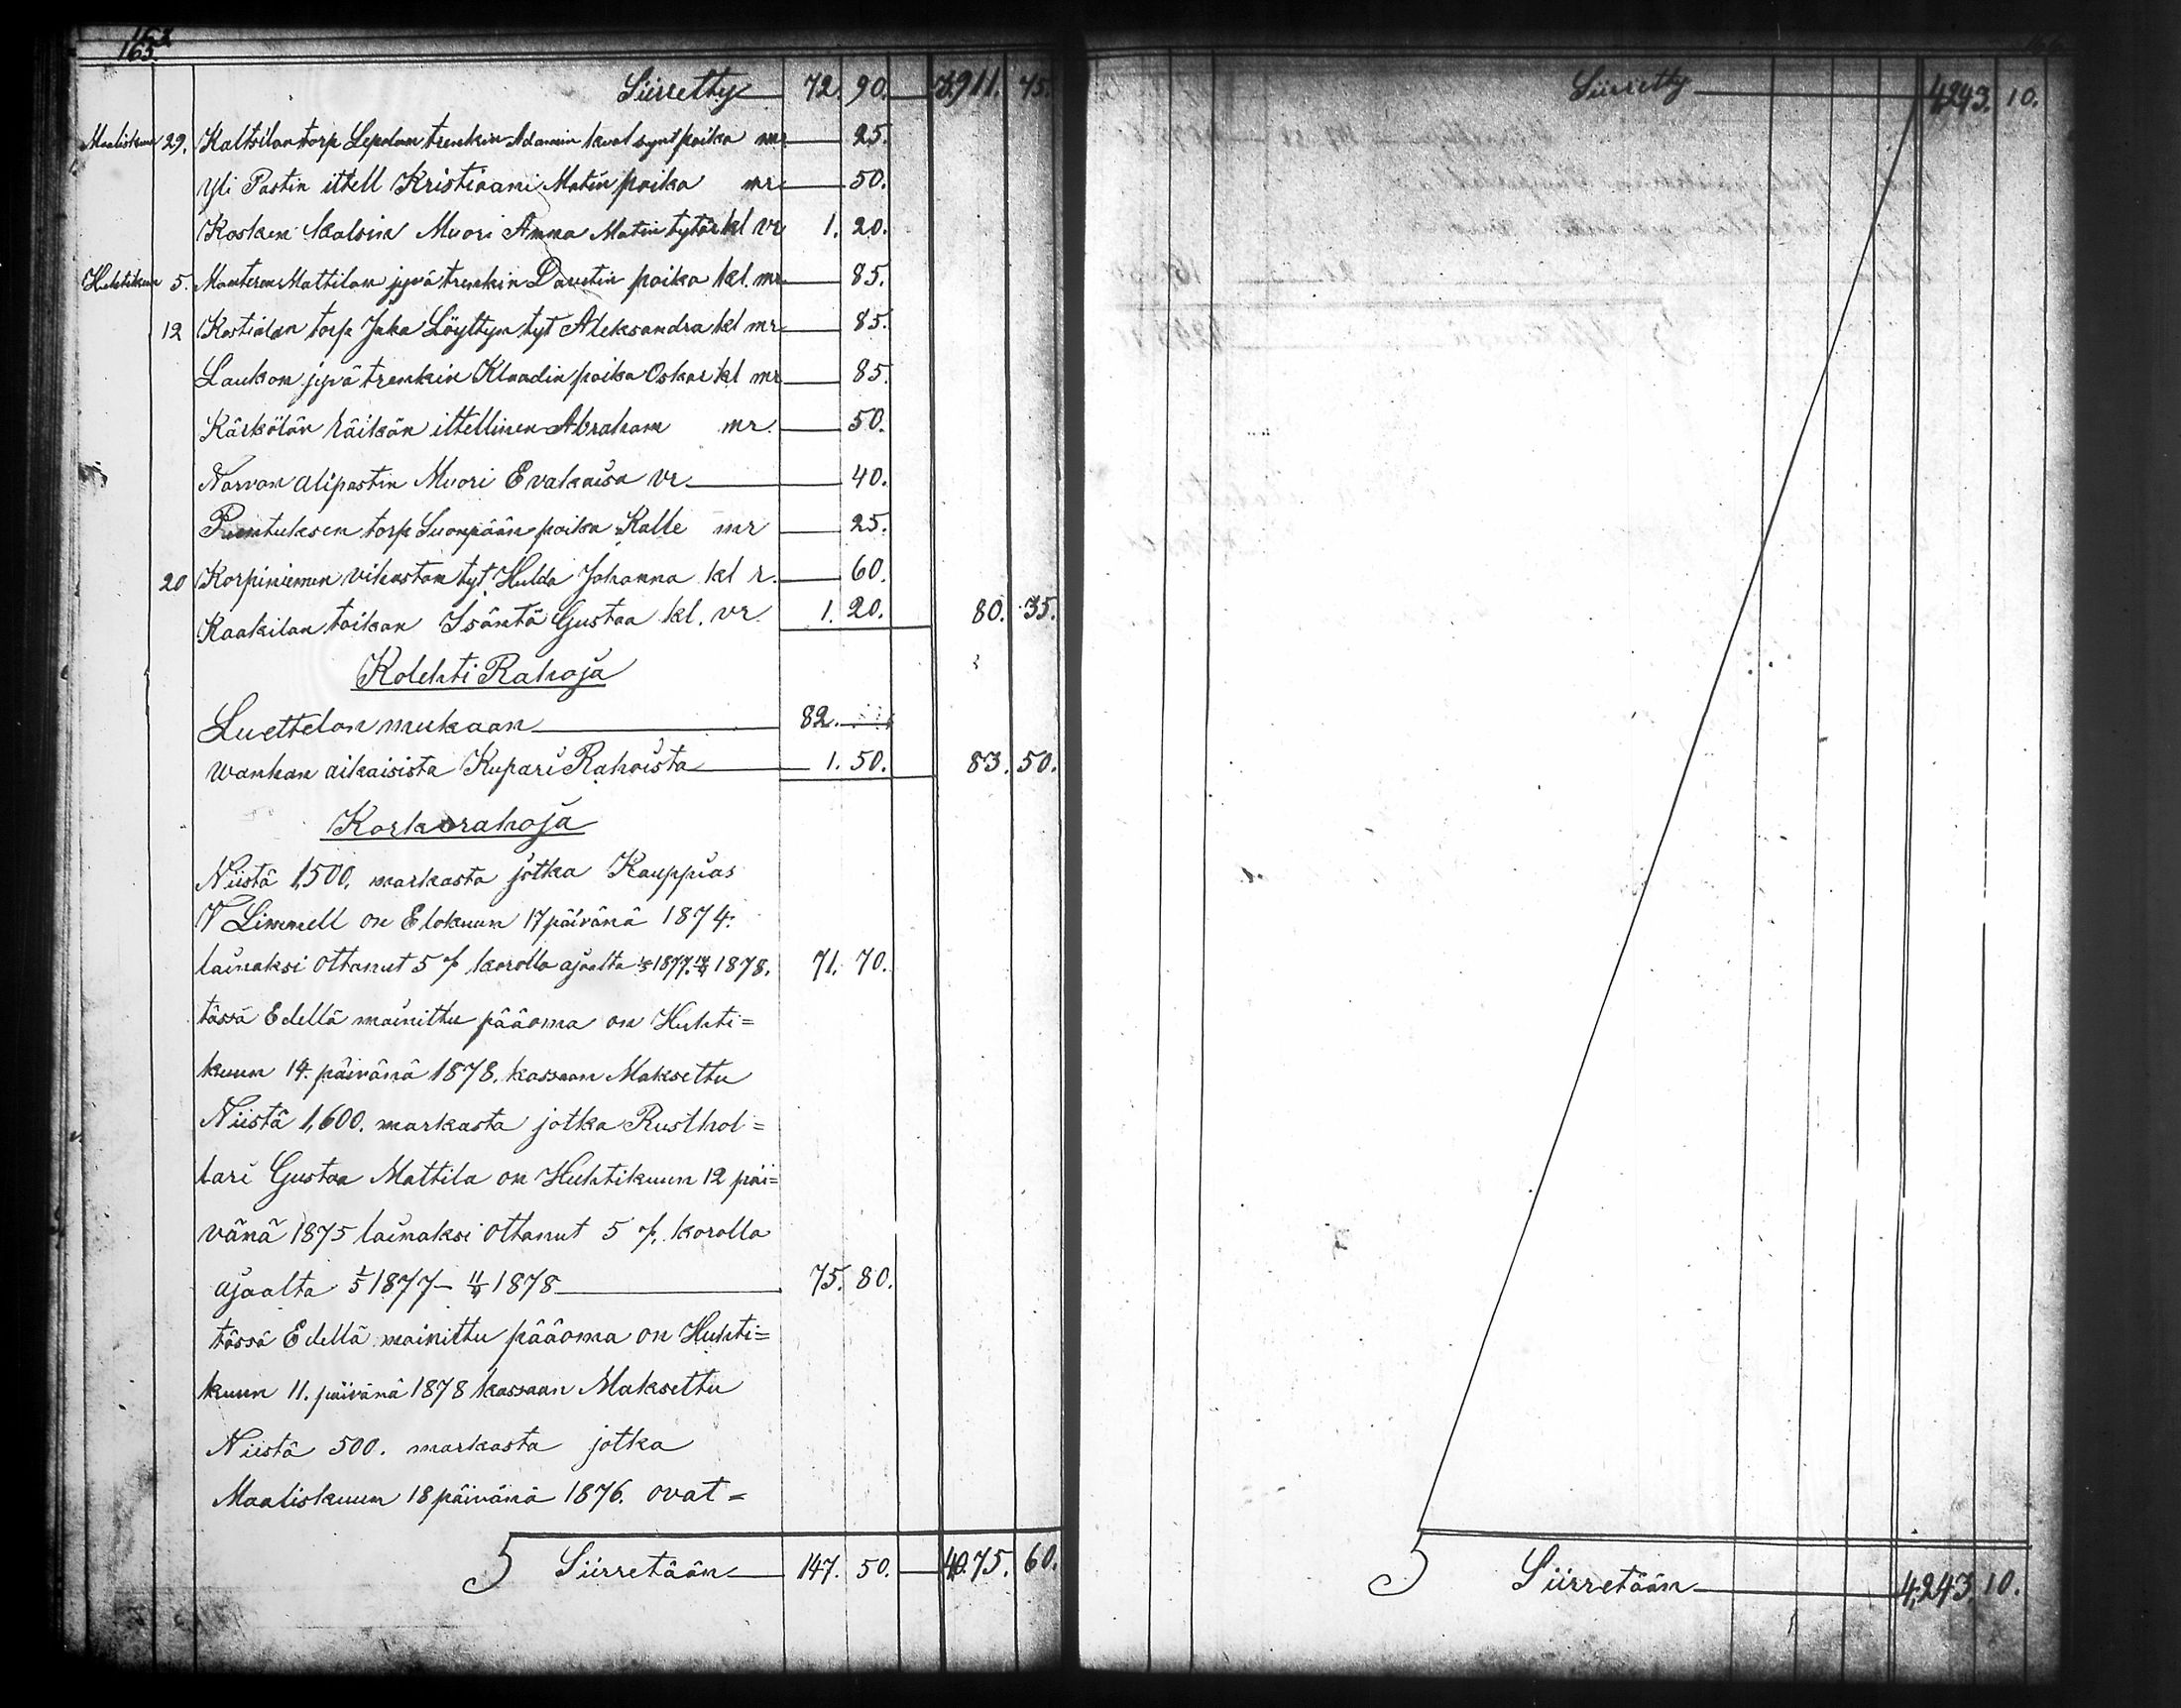 165.
Siirretty 72. 90. 3,911. 75.
Maaliskuun 29. Kaltsilan torp Lepolan trenkin Adamin kuol synt poika mr 25.
Yli Pastin ittell Kristiaani Matin poika mr 50.
Kosken Kalsin Muori Anna Matin tytär kl vr 1. 20.
Huhtikuun 5. Manteren Mattilan jyvä trenkin Davetin poika kl. mr 85.
12 Kostialan torp Juha Löyttyn tyt Aleksandra kl mr 85.
Laukon jyvä trenkin Klaadin poika Oskar kl mr 85.
Kärkölän Räikän ittellinen Abraham mr. 50.
Narvan Alipastin Muori Evakaisa vr 40.
Puntuksen torp Suonpään poika Kalle mr 25.
20 Korpiniemen vihastan tyt. Hulda Johanna kl r. 60.
Kaakilan toikan Isäntä Gustaa kl. vr. 1. 20. 80. 35.
Kolehti Rahoja
Luettelon mukaan 82.
Wanhan aikaisista Kupari Rahoista 1. 50. 83. 50.
Korkorahoja
Niistä 1,500. markasta jotka Kauppias
V Limnell on Elokuun 17 päivänä 1874.
lainaksi ottanut 5 % korolla ajaalta 1/5 1877. 14/4 1878. 71. 70.
tässä Edellä mainittu pääoma on Huhti=
kuun 14. päivänä 1878. kassaan Maksettu
Niistä 1,600. markasta jotka Rusthol=
lari Gustaa Mattila on Huhtikuun 12 päi=
vänä 1875 lainaksi ottanut 5 %. korolla
ajaalta 1/5 1877 - 11/4 1878 75. 80.
tässä Edellä mainittu pääoma on Huhti=
kuun 11. päivänä 1878 kassaan Maksettu
Niistä 500. markasta jotka
Maaliskuun 18 päivänä 1876. ovat =
Siirretään 147. 50. 4075. 60.
Siirretty 4,243. 10.
Siirretään 4,243. 10.